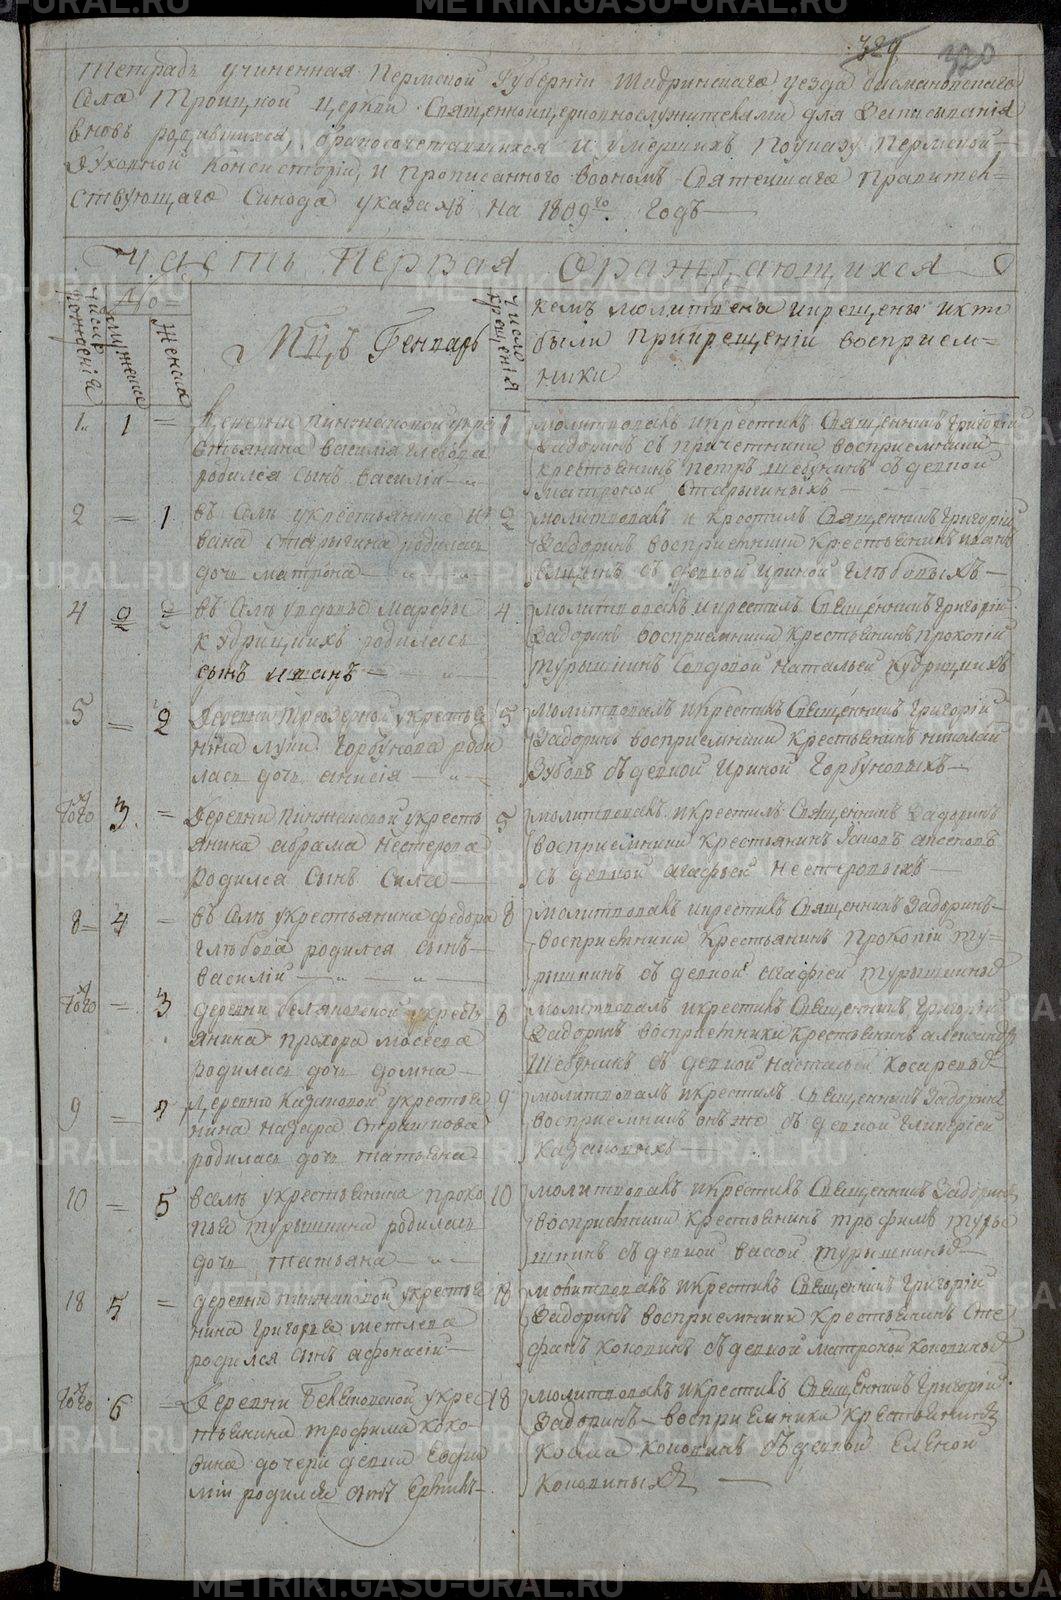 329 320
Тетрадь учиненная Пермской Губернiи Шадринскаго уезда
Села Троицкой Церкви Священноицерковнослужителями для Записыванiя
вновь родившихся, бракосочетавшихся и умершихъ Поуказу Пермской
Духовной Консисторiи, и прописанного воономъ Святейшаго Правитель=
ствующаго Синода указахъ на 1809го годъ
Часть Первая О раждающихся
Число рожденiя
мужеска
Женска
Мцъ Генварь
Число крещенiя
кемъ молитвены икрещены икто
были Прикрещенiи восприем=
ники
1 1 = Деревни пинжаковой укре
стьянина василiя глебова
родился сынъ василiй
1 молитвовалъ икрестилъ Священникъ Григорiй
Задоринъ съ причетники восприемники
крестьянинъ петръ шебунинъ съ девкой
матроной Старыгиныхъ
2 = 1 въ Селе укрестьянина и
вана старыгина родилась
дочь матрона
2 молитвовалъ и крестилъ Священникъ Григорiй
Задоринъ восприемники крестьянинъ иванъ
съ девкой Ириной глебовыхъ
4 2 = въ Селе увдовы марфы
кудрицкихъ родилась
сынъ иванъ
4 молитвовалъ икрестилъ Священникъ Григорiй
Задоринъ восприемники Крестьянинъ прокопiй
турышкинъ Совдовой натальей кудрицкихъ
5 = 2 Деревни Треозерной укрестья
нина луки Горбунова роди
лась дочь анисiя
5 молитвовалъ икрестилъ Священникъ Григорiй
Задоринъ восприемники Крестьянинъ николай
Зубовъ съ девкой Ириной Горбуновыхъ
Того 3 = Деревни пинжаковой укресть
янина абрама Нестерова
родился Сынъ Сила
5 молитвовалъ икрестилъ Священникъ Задоринъ
восприемники Крестьянинъ
съ девкой агафьей Нестеровыхъ
8 4 = въ Селе укрестьянина федора
глебова родился сынъ
василiй
8 молитвовалъ икрестилъ Священникъ Задоринъ
восприемники Крестьянинъ Прокопiй ту=
рышкинъ съ девкой агафiей турышкиныхъ
Того = 3 деревни укресть
янина прохора мосеева
родилась дочь домна
8 молитвовалъ икрестилъ Священникъ Григорiй
Задоринъ восприемники крестьянинъ александръ
Шебунинъ съ девкой настасьей Косаревыхъ
9 = 4 Деревни Казаковой укрестья
нина назара
родилась дочь татьяна
9 молитвовалъ икрестилъ Священникъ Задоринъ
восприемникъ онъже съ девкой гликерiей
Казаковыхъ
10 = 5 вселе укрестьянина проко
пья турышкина родилась
дочь татьяна
10 молитвовалъ икрестилъ Священникъ Задоринъ
восприемники Крестьянинъ трофимъ туры
шкинъ съ девкой васой турышкиныхъ
18 5 = деревни пинжаковой укрестья
нина григорья метлева
родился сынъ афонасiй
18 молитвовалъ икрестилъ Священникъ Григорiй
Задоринъ восприемники Крестьянинъ Сте
фанъ Коковинъ съ девкой матроной коковиныхъ
Того 6 = Деревни укрес
тьянина трофима коко
вина дочери девки Евфи
мiи родился сынъ
18 молитвовалъ икрестилъ Священникъ Григорiй
Задоринъ восприемники Крестьянинъ
Косма коковинъ съ девкой Еленой
Коковиныхъ